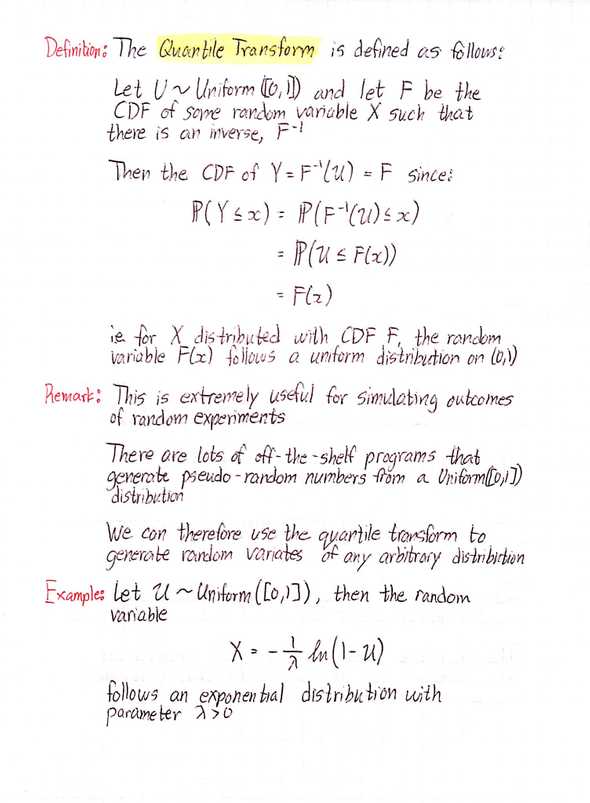 Definition: The Quantile Transform is defined as follows:
Let U ~ Uniform ([0,1]) and let F be the
CDF of some random variable X such that
there is an inverse, F⁻¹
Then the CDF of Y = F⁻¹(U) = F since:
ℙ(Y ≤ x) = ℙ(F⁻¹(U) ≤ x)
= ℙ(U ≤ F(x))
= F(x)
ie for X distributed with CDF F, the random
variable F(x) follows a uniform distribution on (0,1)
Remark: This is extremely useful for simulating outcomes
of random experiments
There are lots of off-the-shelf programs that
generate pseudo-random numbers from a Uniform([0,1])
distribution
We can therefore use the quantile transform to
generate random variates of any arbitrary distribution
Example: Let U ~ Uniform ([0,1]), then the random
variable
X = - 1/λ ln(1-U)
follows an exponential distribution with
parameter λ>0